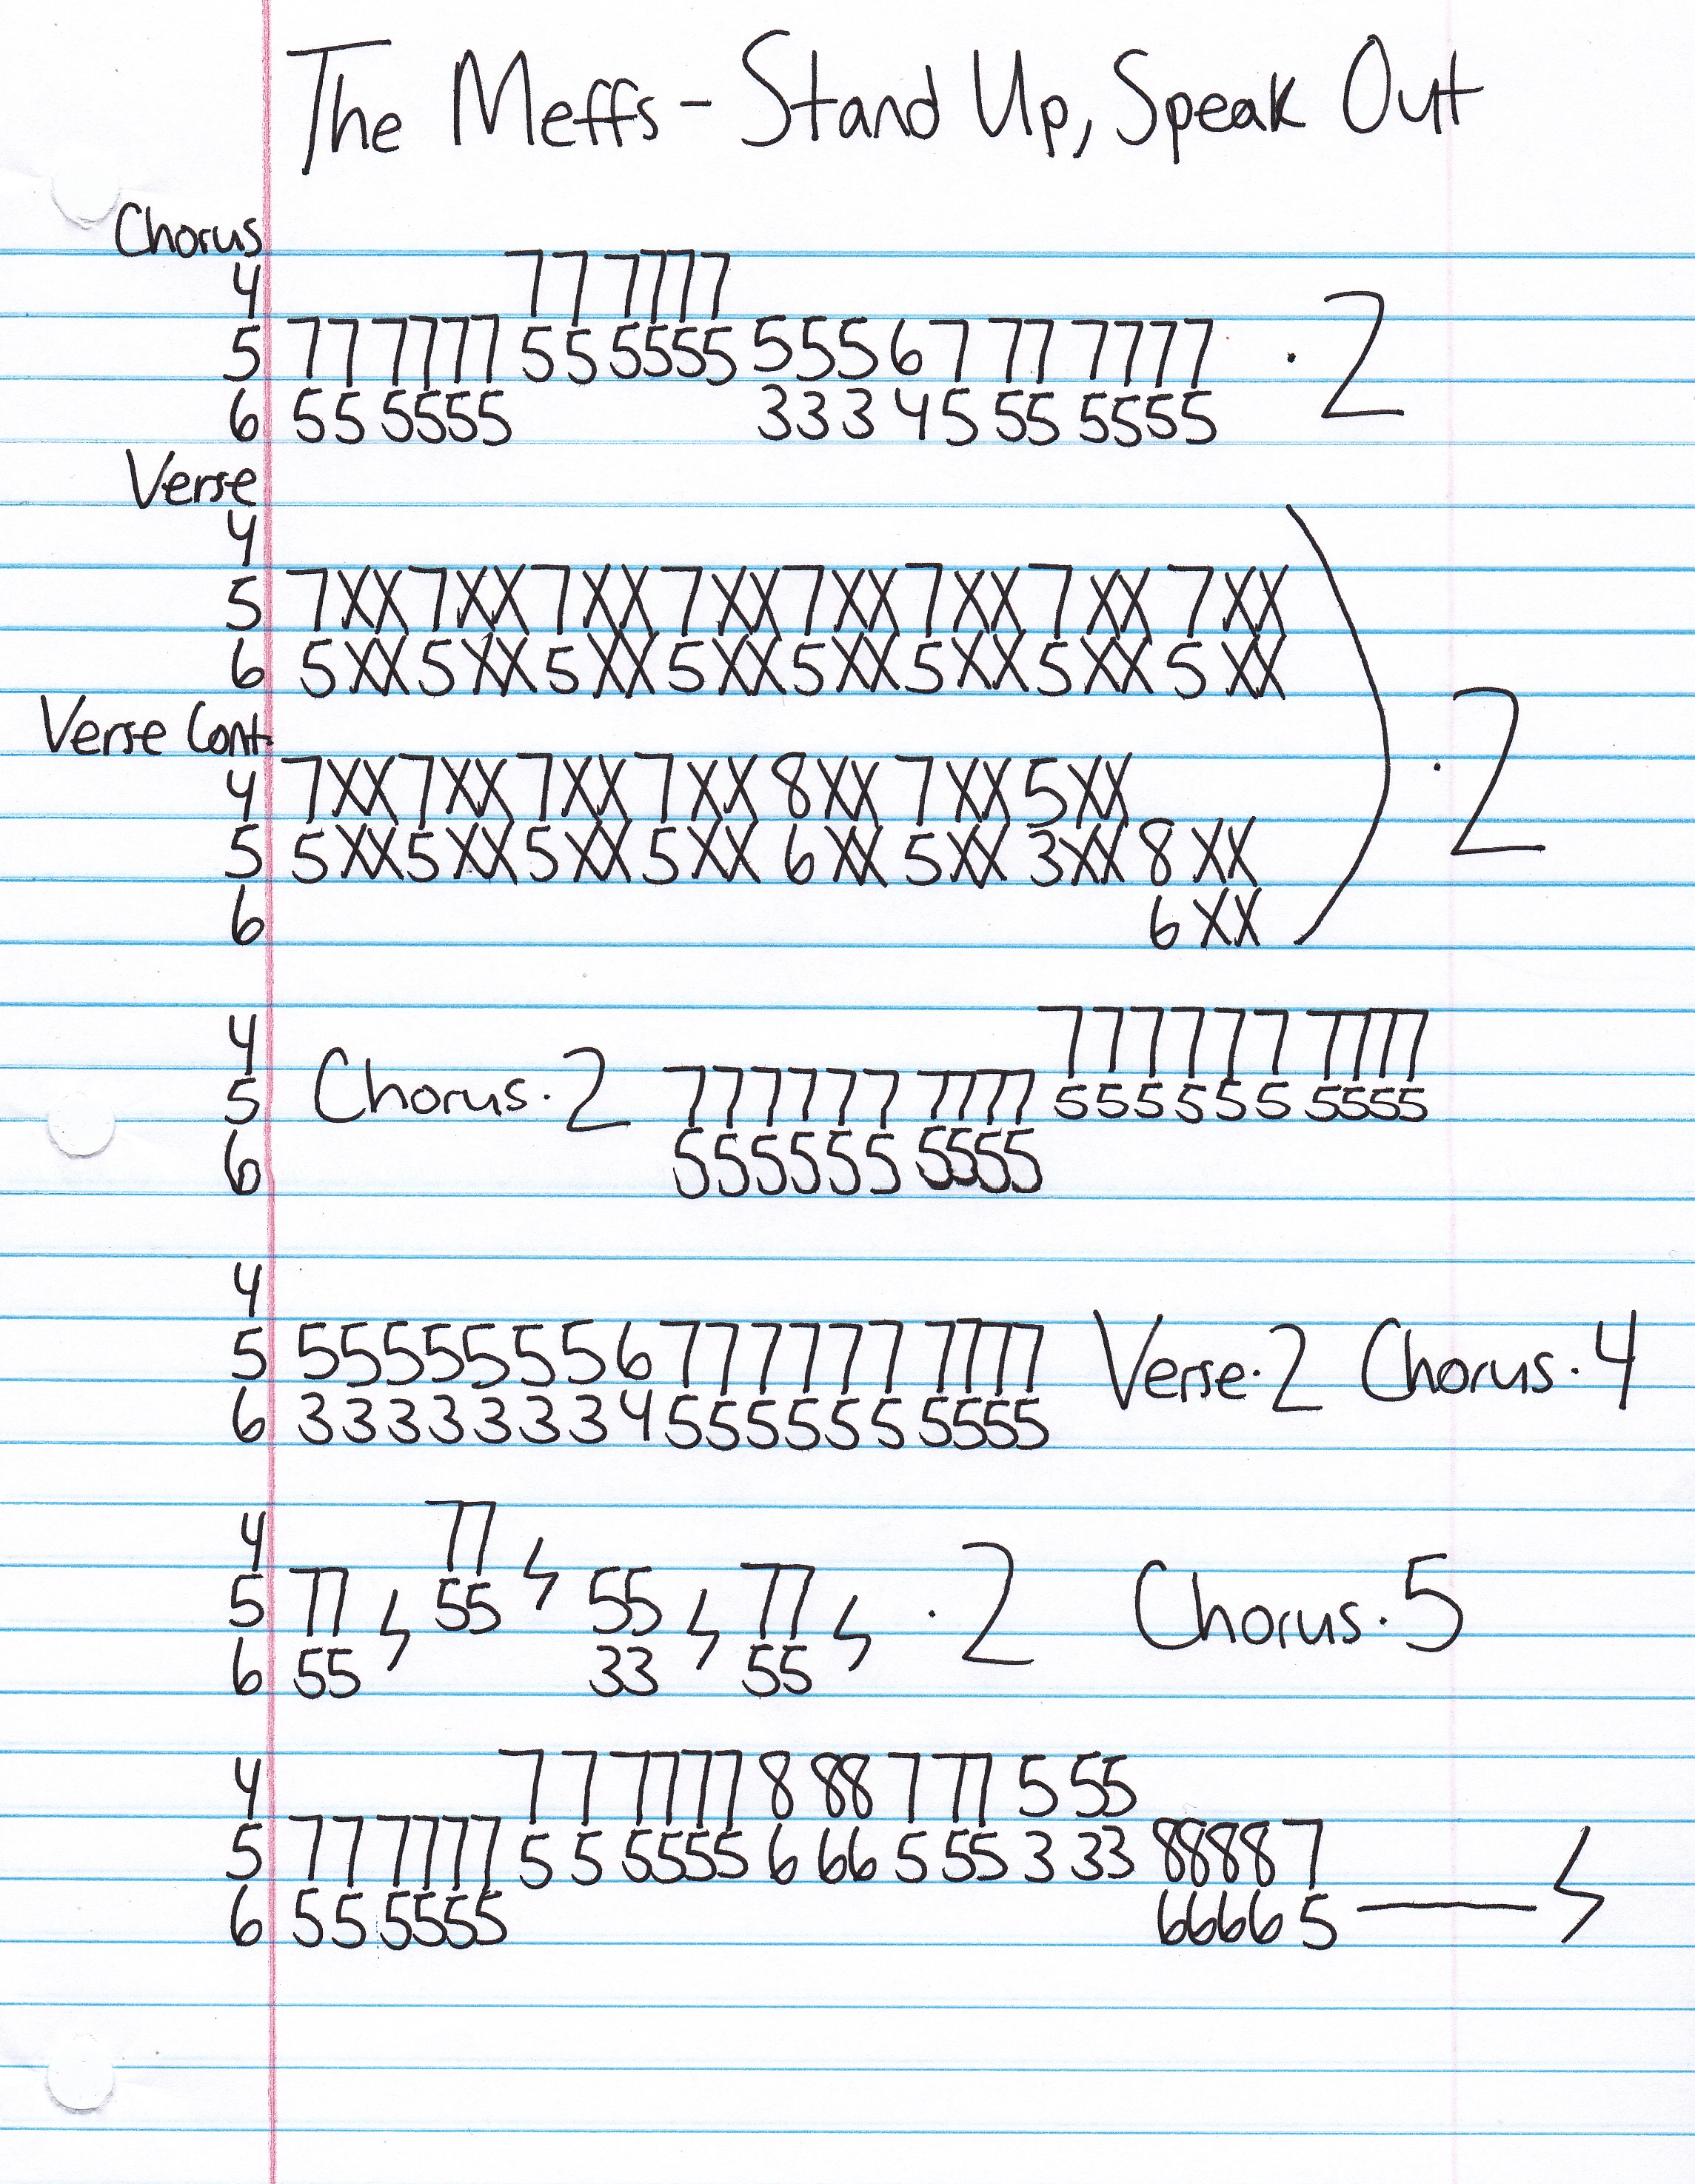 The Meffs - Stand Up, Speak Out
Chorus
4 77 7777
5 77 7777 55 5555 5556 7 77 7777 · 2
6 55 5555 333 45 55 5555
Verse
4
5 7XX7XX7XX7XX7XX7XX7XX7XX
6 5XX5XX5XX5XX5XX5XX5XX5XX
Verse Cont.
4 7XX7XX7XX7XX8XX7XX5XX · 2
5 5XX5XX5XX5XX6XX5XX3XX8XX
6 6XX
4 777777 7777
5 Chorus · 2 777777 7777 555555 5555
6 555555 5555
4
5 55555556777777 7777 Verse · 2 Chorus · 4
6 33333334555555 5555
4 77
5 77 55 55 77 · 2 Chorus · 5
6 55 33 55
4 7 7 7777 8 88 7 77 5 55
5 77 7777 5 5 5555 6 66 5 55 3 33 8888 7
6 55 5555 6666 5